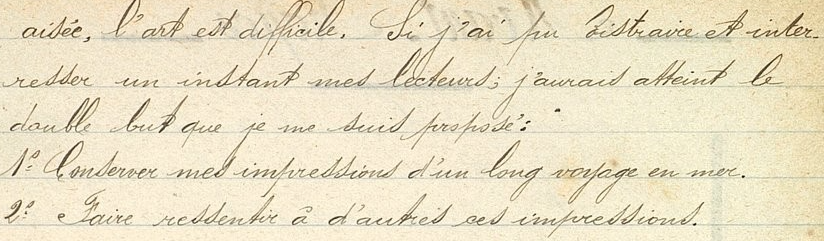 aisée, l'art est difficile. Si j'ai pu distraire et inter-
resser un instant mes lecteurs; j'aurais atteint le
double but que je me suis proposé:
1º Conserver mes impressions d'un long voyage en mer.
2º Faire ressentir à d'autres ces impressions.